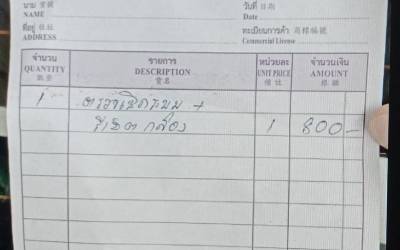 นาม 宝號
NAME
วันที่ 日期
Date
ที่อยู่ 住址
ADDRESS
ทะเบียนการค้า 商標編號
Commercial License
จำนวน รายการ หน่วยละ จำนวนเงิน
QUANTITY DESCRIPTION UNIT PRICE AMOUNT
數量 貨名 價 銀
1 ตรวจเช็คระบบ +
รีเซ็ต กล่อง 1 800-